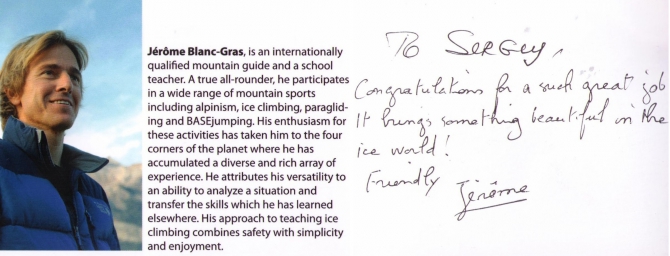 Jérôme Blanc-Gras, is an internationally
qualified mountain guide and a school
teacher. A true all-rounder, he participates
in a wide range of mountain sports
including alpinism, ice climbing, paraglid-
ing and BASEjumping. His enthusiasm for
these activities has taken him to the four
corners of the planet where he has
accumulated a diverse and rich array of
experience. He attributes his versatility to
an ability to analyze a situation and
transfer the skills which he has learned
elsewhere. His approach to teaching ice
climbing combines safety with simplicity
and enjoyment.
To SERGUY,
Congratulations for a such great job
It brings something beautiful in the
ice world!
Friendly Jérôme